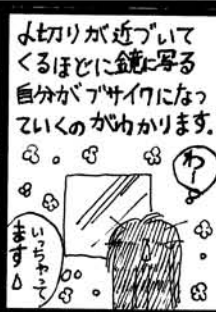 〆切りが近づいて
くるほどに鏡に写る
自分がブサイクになっ
ていくのがわかります。
わー
いっちゃって
ます